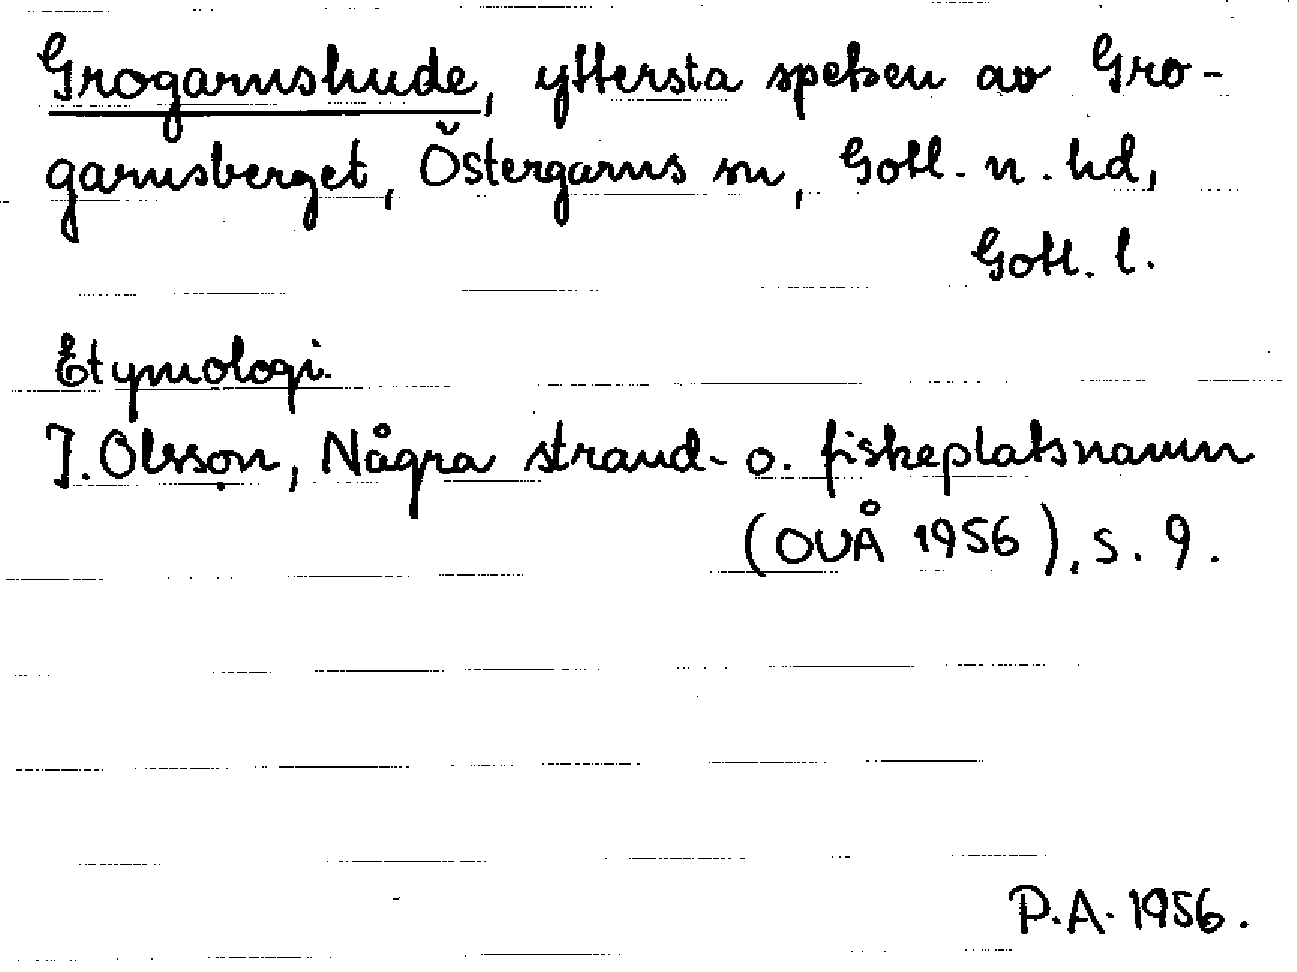 Grogarnshude, yttersta spetsen av Gro-
garnsberget, Östergarns sn, Gotl. n. hd,
Gotl. l.
Etymologi.
I. Olsson, Några strand- o. fiskeplatsnamn
(OUÅ 1956), s. 9.
P.A. 1956.